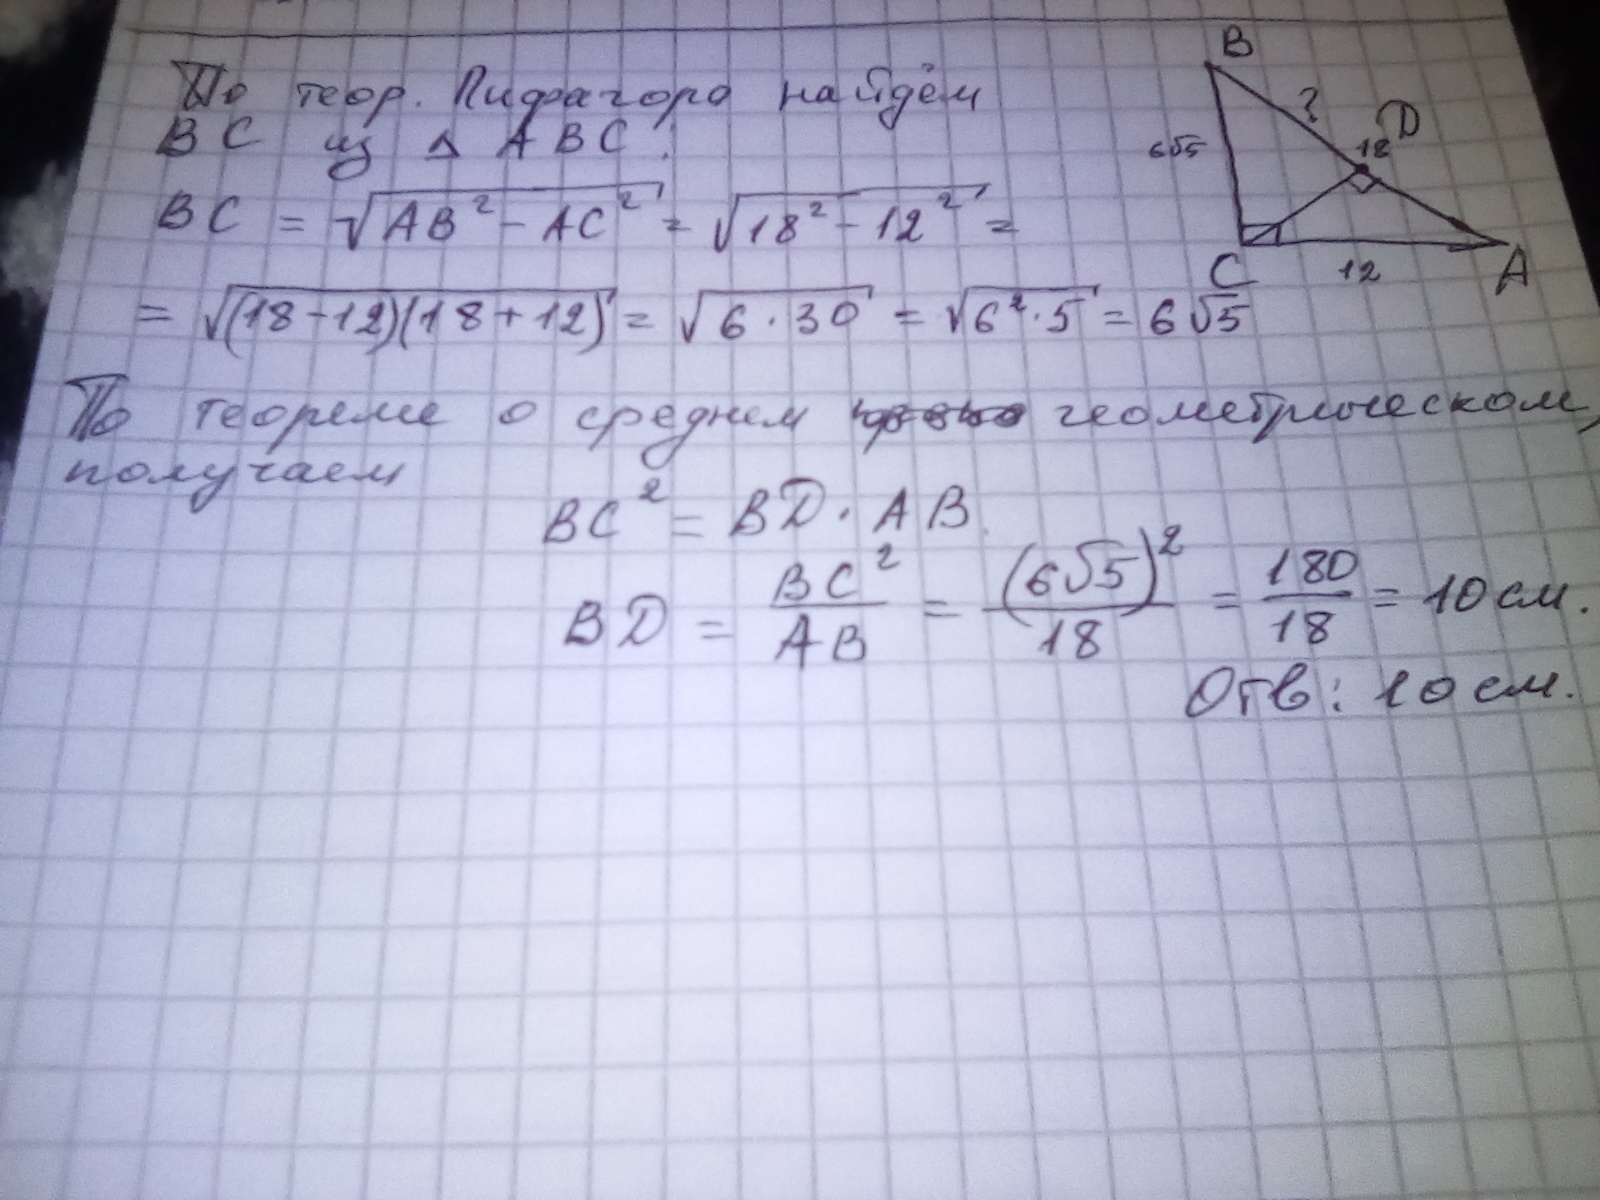 По теор. Пифагора найдём
BC из △ ABC:
BC = √(AB² - AC²) = √(18² - 12²) =
= √((18-12)(18+12)) = √(6·30) = √(6²·5) = 6√5
По теореме о среднем геометрическом,
получаем
BC² = BD · AB
BD = BC²/AB = (6√5)²/18 = 180/18 = 10 см.
Отв: 10 см.
B
?
D
18
6√5
C
12
A